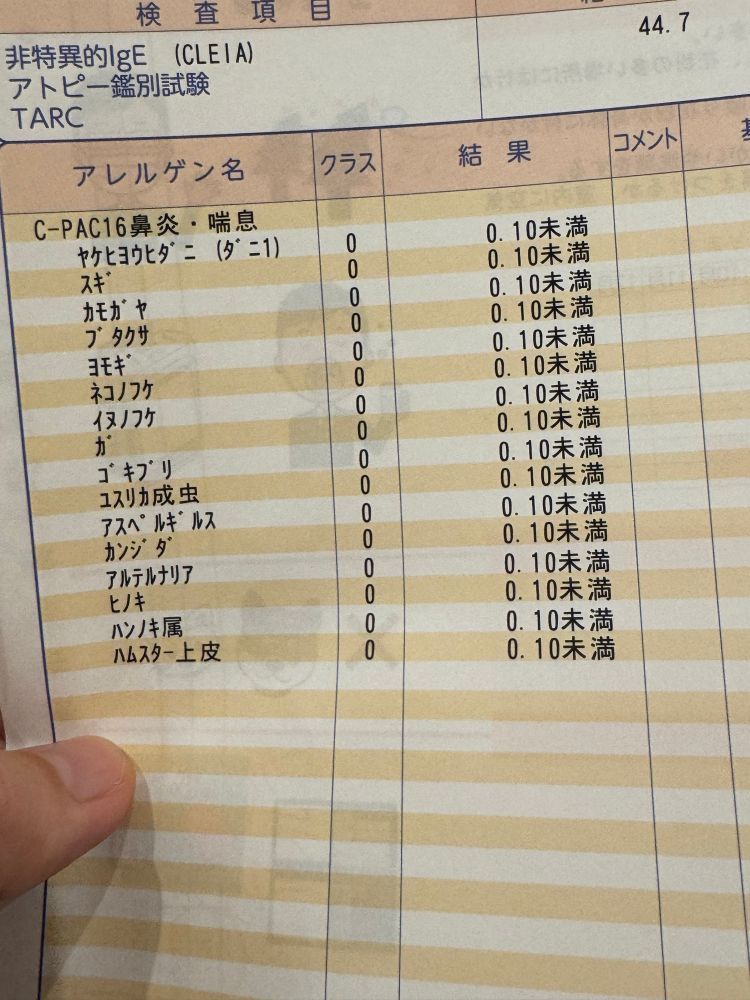 検査項目
非特異的IgE (CLEIA) 44.7
アトピー鑑別試験
TARC
アレルゲン名 クラス 結果 コメント
C-PAC16鼻炎・喘息
ﾔｹﾋﾖｳﾋﾀﾞﾆ (ﾀﾞﾆ1) 0 0.10未満
ｽｷﾞ 0 0.10未満
ｶﾓｶﾞﾔ 0 0.10未満
ﾌﾞﾀｸｻ 0 0.10未満
ﾖﾓｷﾞ 0 0.10未満
ﾈｺﾉﾌｹ 0 0.10未満
ｲﾇﾉﾌｹ 0 0.10未満
ｶﾞ 0 0.10未満
ｺﾞｷﾌﾞﾘ 0 0.10未満
ﾕｽﾘｶ成虫 0 0.10未満
ｱｽﾍﾟﾙｷﾞﾙｽ 0 0.10未満
ｶﾝｼﾞﾀﾞ 0 0.10未満
ｱﾙﾃﾙﾅﾘｱ 0 0.10未満
ﾋﾉｷ 0 0.10未満
ﾊﾝﾉｷ属 0 0.10未満
ﾊﾑｽﾀｰ上皮 0 0.10未満